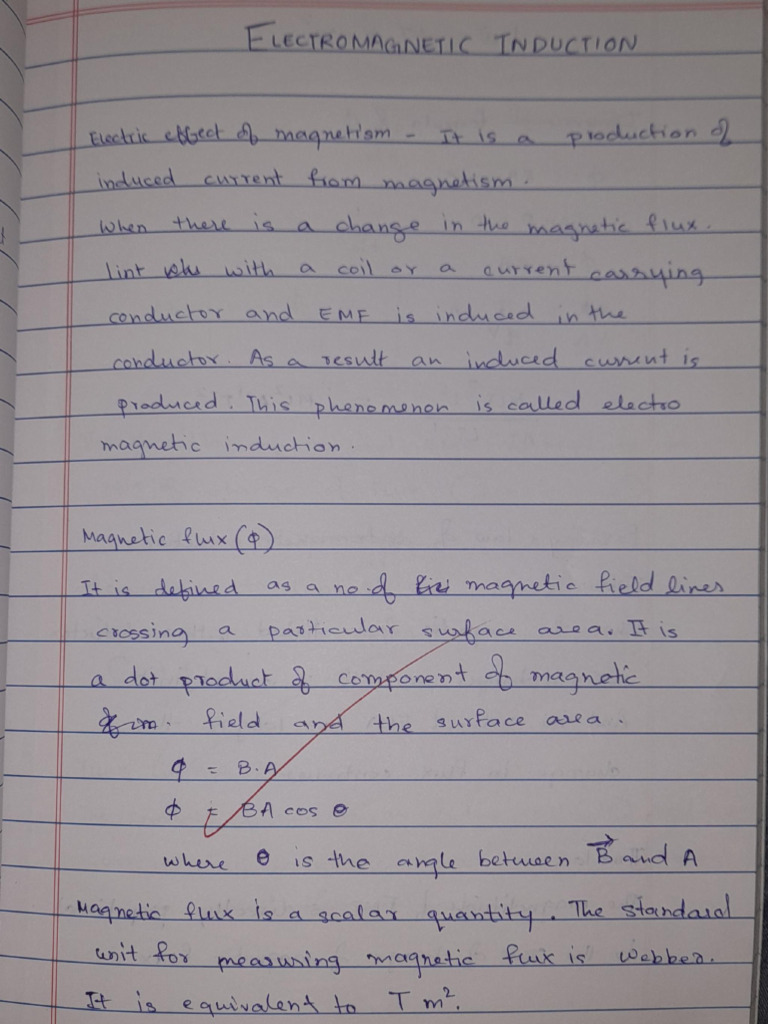 ELECTROMAGNETIC INDUCTION
Electric effect of magnetism - It is a production of
induced current from magnetism.
When there is a change in the magnetic flux.
lint with a coil or a current carrying
conductor and EMF is induced in the
conductor. As a result an induced current is
produced. This phenomenon is called electro
magnetic induction.
Magnetic flux (φ)
It is defined as a no. of magnetic field lines
crossing a particular surface area. It is
a dot product of component of magnetic
field and the surface area.
φ = B.A
φ = BA cos θ
where θ is the angle between B⃗ and A
Magnetic flux is a scalar quantity. The standard
unit for measuring magnetic flux is webber.
It is equivalent to T m².